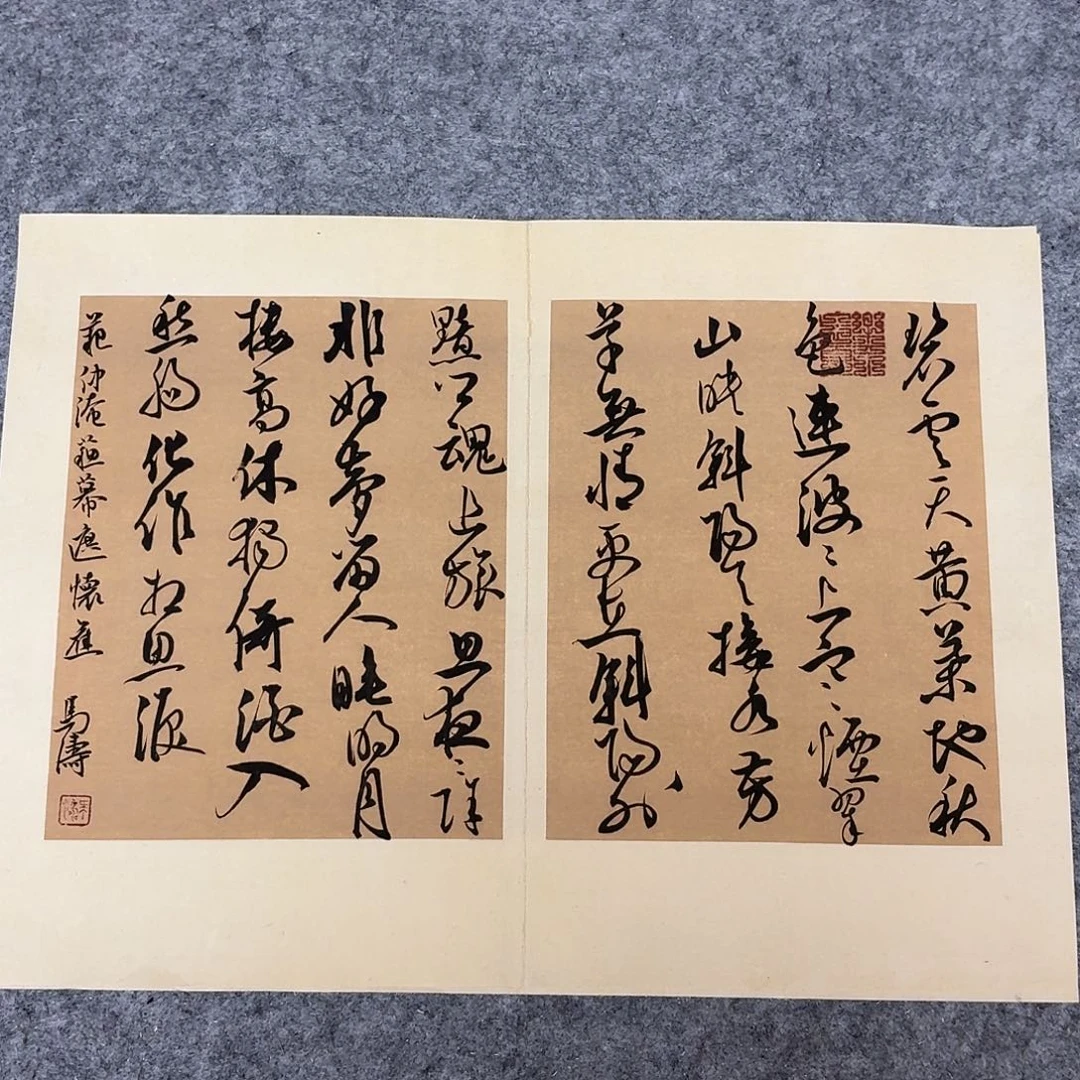 碧雲天黃葉地秋
色連波〻上寒煙翠
山映斜陽天接水芳
草無情更在斜陽外
黯鄉魂追旅思夜〻除
非好夢留人睡明月
樓高休獨倚酒入
愁腸化作相思淚
范仲淹蘇幕遮懷舊 馬濤